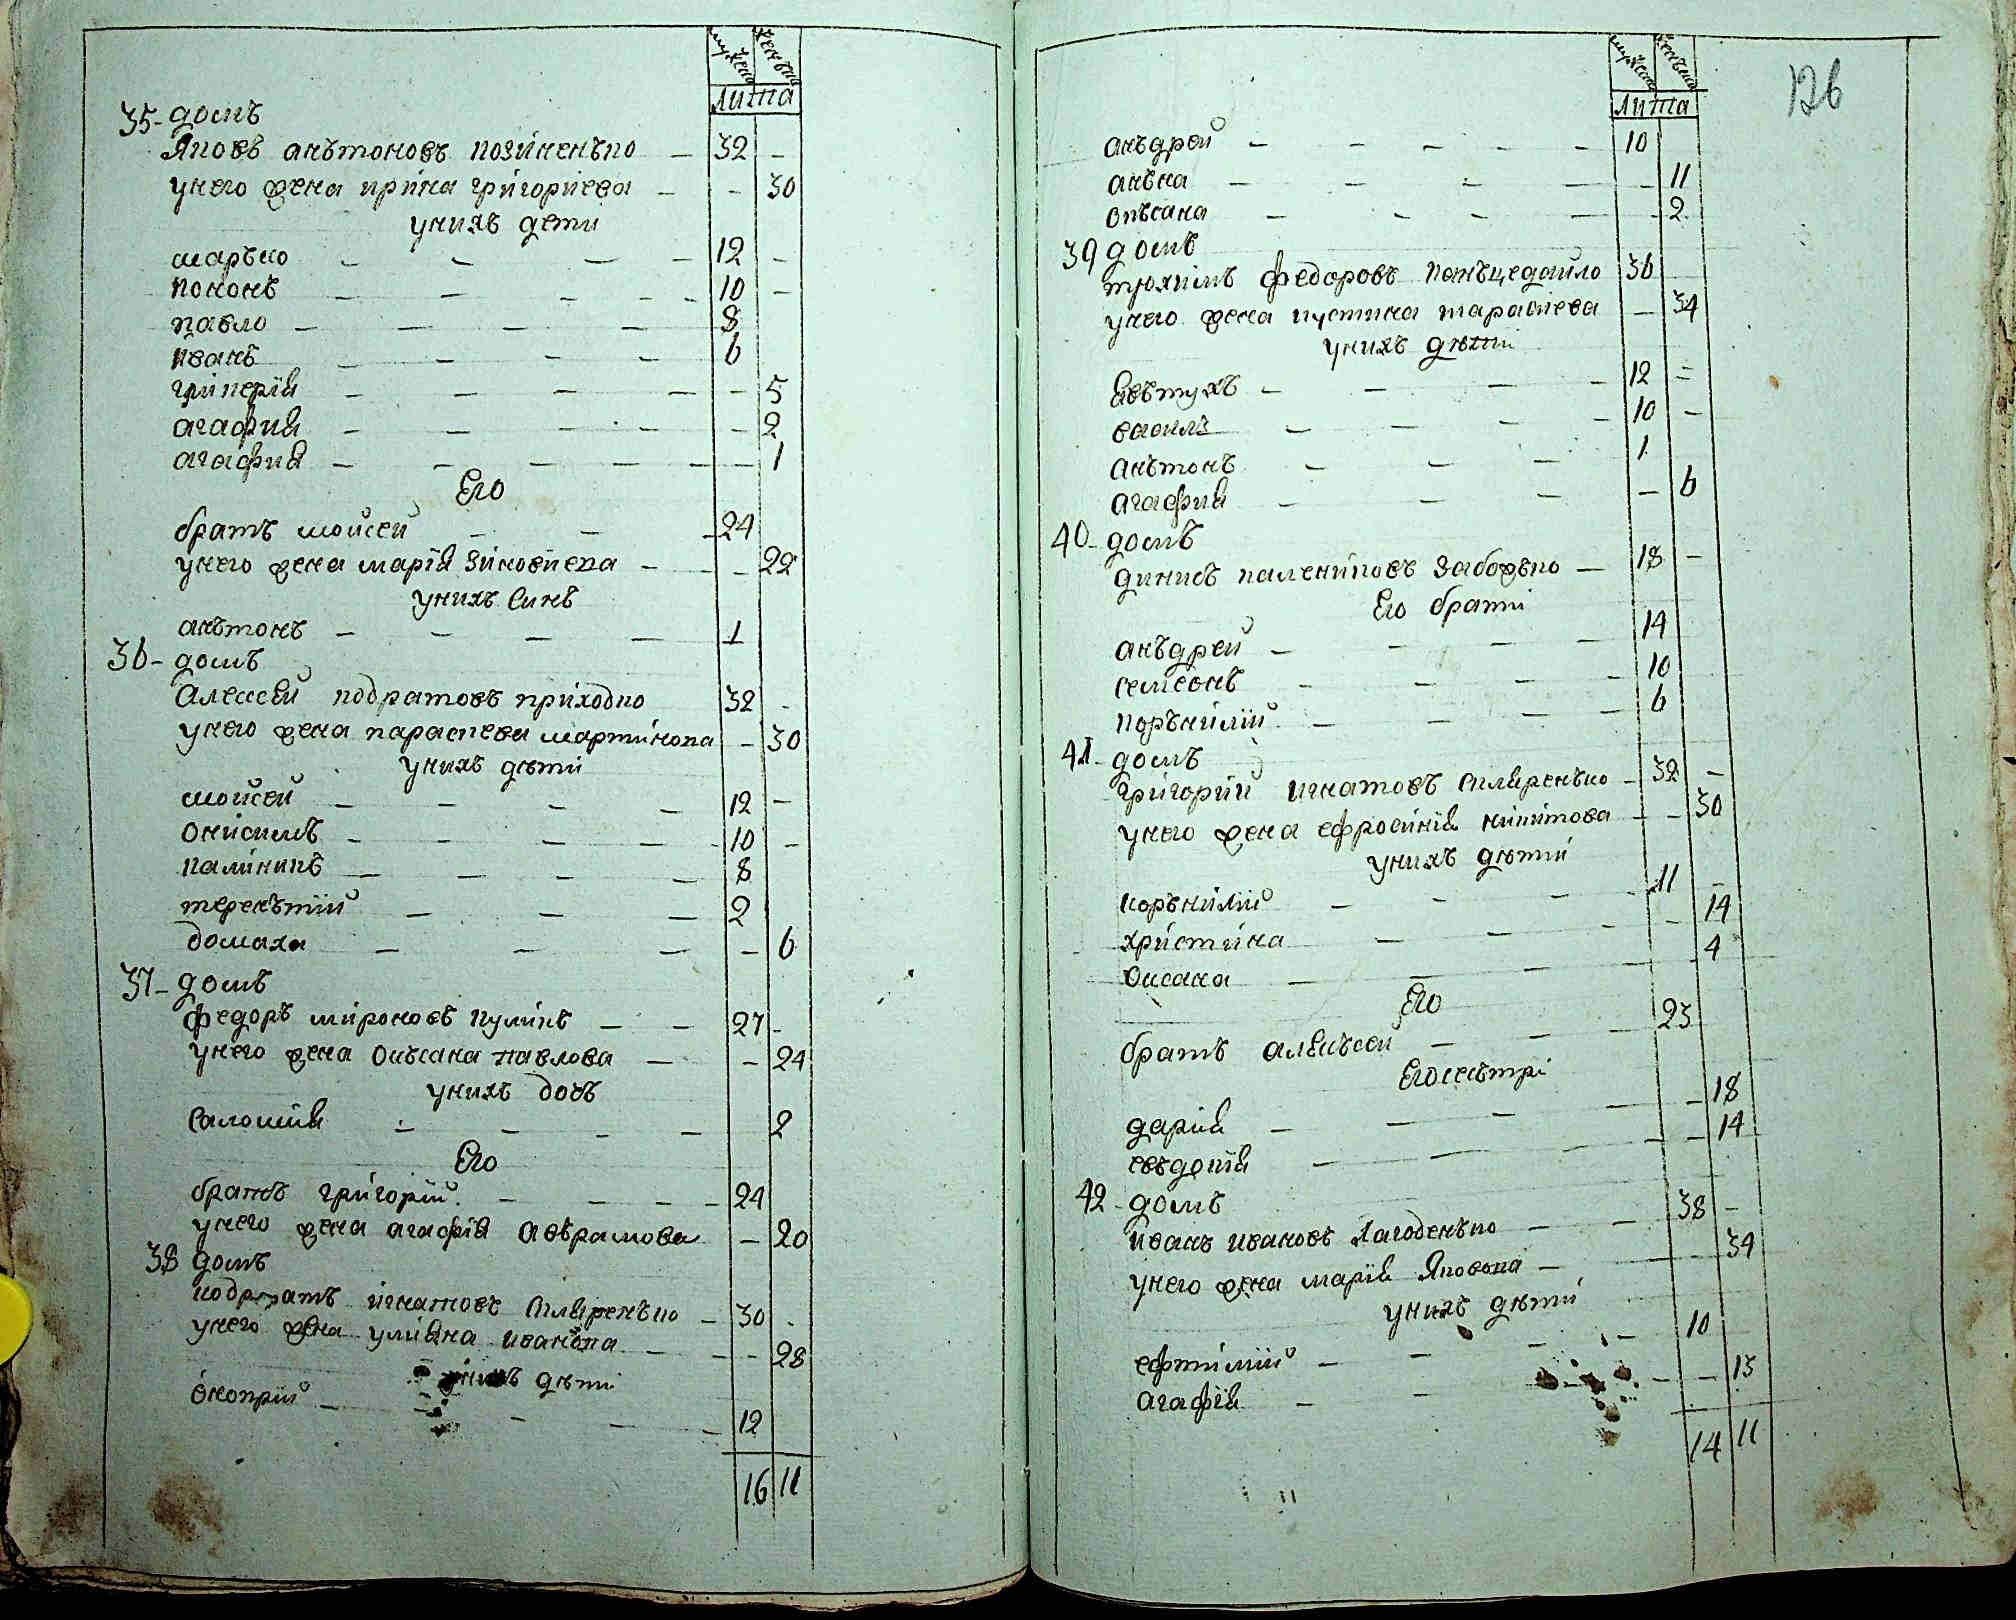 мужена женъна
лита
35- домъ
Яковъ анътоновъ козиненъко — 32 -
унего жена ирина григориева — - 30
унихъ дети
маръко — — — 12 -
кононъ — — — 10 -
павло — — — 8
иванъ — — — 6
гликерїя — — — - 5
агафия — — — - 2
агафия — — — - 1
Его
братъ мойсей — — 24
унего жена марїя зиновиева — - 22
унихъ синъ
анътонъ — — — 1
36- домъ
Алексей кодратовъ приходко 32 -
унего жена параскева мартинова - 30
унихъ дѣти
мойсей — — — 12 -
онисимъ — — — 10 -
калиникъ — — — 8
теренътий — — — 2
домаха — — — - 6
37- домъ
федоръ мироновъ куликъ — — 27 -
унего жена окъсана павлова — - 24
унихъ дочъ
саломия — — — 2
Его
братъ григорїй — — — 24
унего жена агафїя авърамова — 20
38 домъ
кодратъ игнатовъ скляренъко — 30 -
унего жена улияна иванова — - 28
унихъ дѣти
онопрїй — — — 12
16 11
126
мужена женъна
лита
анъдрей — — — — 10
анъна — — — — - 11
окъсана — — — — - 2
39 домъ
трохимъ федоровъ панъцедайло 36
унего жена иустина тарасиева — 34
унихъ дѣти
явътухъ — — — — 12 =
василъ — — — — 10 -
анътонъ — — — 1
агафия — — — — 6
40- домъ
динисъ калениковъ забожъко — 18 -
Его братї
анъдрей — — — — 14
семионъ — — — — 10
коръниллий — — — — 6
41- домъ
григорий игнатовъ скляренъко — 32 -
унего жена ефросиния никитова — - 30
унихъ дѣтий
коръниллий — — — 11 -
християна — — — - 14
оксана — — — 4
Его
братъ алекъсей — — — 23
Его сестърї
дария — — — - 18
евъдокия — — — - 14
42 домъ
иванъ ивановъ лагоденъко — — 38 -
унего жена марїя яковова — 34
унихъ дѣти
ефтимий — — — 10
агафїя — — — — 13
14 11